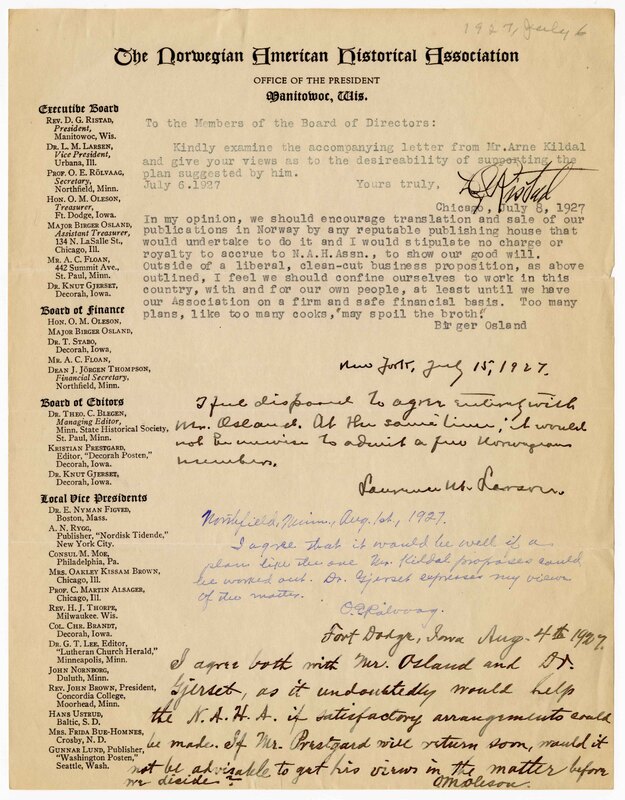 1927, July 6
The Norwegian American Historical Association
OFFICE OF THE PRESIDENT
Manitowoc, Wis.
Executive Board
REV. D. G. RISTAD,
President,
Manitowoc, Wis.
DR. L. M. LARSEN,
Vice President,
Urbana, Ill.
PROF. O. E. RÖLVAAG,
Secretary,
Northfield, Minn.
HON. O. M. OLESON,
Treasurer,
Ft. Dodge, Iowa.
MAJOR BIRGER OSLAND,
Assistant Treasurer,
134 N. LaSalle St.,
Chicago, Ill.
MR. A. C. FLOAN,
442 Summit Ave.,
St. Paul, Minn.
DR. KNUT GJERSET,
Decorah, Iowa.
Board of Finance
HON. O. M. OLESON,
MAJOR BIRGER OSLAND,
DR. T. STABO,
Decorah, Iowa,
MR. A. C. FLOAN,
DEAN J. JÖRGEN THOMPSON,
Financial Secretary,
Northfield, Minn.
Board of Editors
DR. THEO. C. BLEGEN,
Managing Editor,
Minn. State Historical Society,
St. Paul, Minn.
KRISTIAN PRESTGARD,
Editor, "Decorah Posten,"
Decorah, Iowa.
DR. KNUT GJERSET,
Decorah, Iowa.
Local Vice Presidents
DR. E. NYMAN FIGVED,
Boston, Mass.
A. N. RYGG,
Publisher, "Nordisk Tidende,"
New York City.
CONSUL M. MOE,
Philadelphia, Pa.
MRS. OAKLEY KISSAM BROWN,
Chicago, Ill.
PROF. C. MARTIN ALSAGER,
Chicago, Ill.
REV. H. J. THORPE,
Milwaukee. Wis.
COL. CHR. BRANDT,
Decorah, Iowa.
DR. G. T. LEE, Editor,
"Lutheran Church Herald,"
Minneapolis, Minn.
JOHN NORBORG,
Duluth, Minn.
REV. JOHN BROWN, President,
Concordia College,
Moorhead, Minn.
HANS USTRUD,
Baltic, S. D.
MRS. FRIDA BUE-HOMNES,
Crosby, N. D.
GUNNAR LUND, Publisher,
"Washington Posten,"
Seattle, Wash.
To the Members of the Board of Directors:
Kindly examine the accompanying letter from Mr.Arne Kildal
and give your views as to the desireability of supporting the
plan suggested by him.
July 6.1927 Yours truly, D G Ristad
Chicago, July 8, 1927
In my opinion, we should encourage translation and sale of our
publications in Norway by any reputable publishing house that
would undertake to do it and I would stipulate no charge or
royalty to accrue to N.A.H.Assn., to show our good will.
Outside of a liberal, clean-cut business proposition, as above
outlined, I feel we should confine ourselves to work in this
country, with and for our own people, at least until we have
our Association on a firm and safe financial basis. Too many
plans, like too many cooks, "may spoil the broth."
Birger Osland
New York, July 15, 1927.
I feel disposed to agree entirely with
Mr. Osland. At the same time, it would
not be unwise to admit a few Norwegian
members.
Laurence M. Larson.
Northfield, Minn., Aug. 1st, 1927.
I agree that it would be well if a
plan like the one Mr. Kildal proposes could
be worked out. Dr. Gjerset expresses my views
of the matter.
O.E. Rölvaag.
Fort Dodge, Iowa Aug. 4th 1927.
I agree both with Mr. Osland and Dr.
Gjerset, as it undoubtedly would help
the N.A.H.A. if satisfactory arrangements could
be made. If Mr. Prestgard will return soon, would it
not be advisable to get his views in the matter before
we decide? O M Oleson.